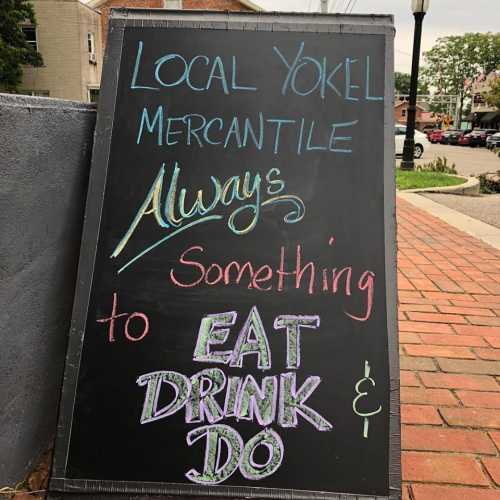 LOCAL YOKEL
MERCANTILE
Always
Something
to EAT
DRINK &
DO